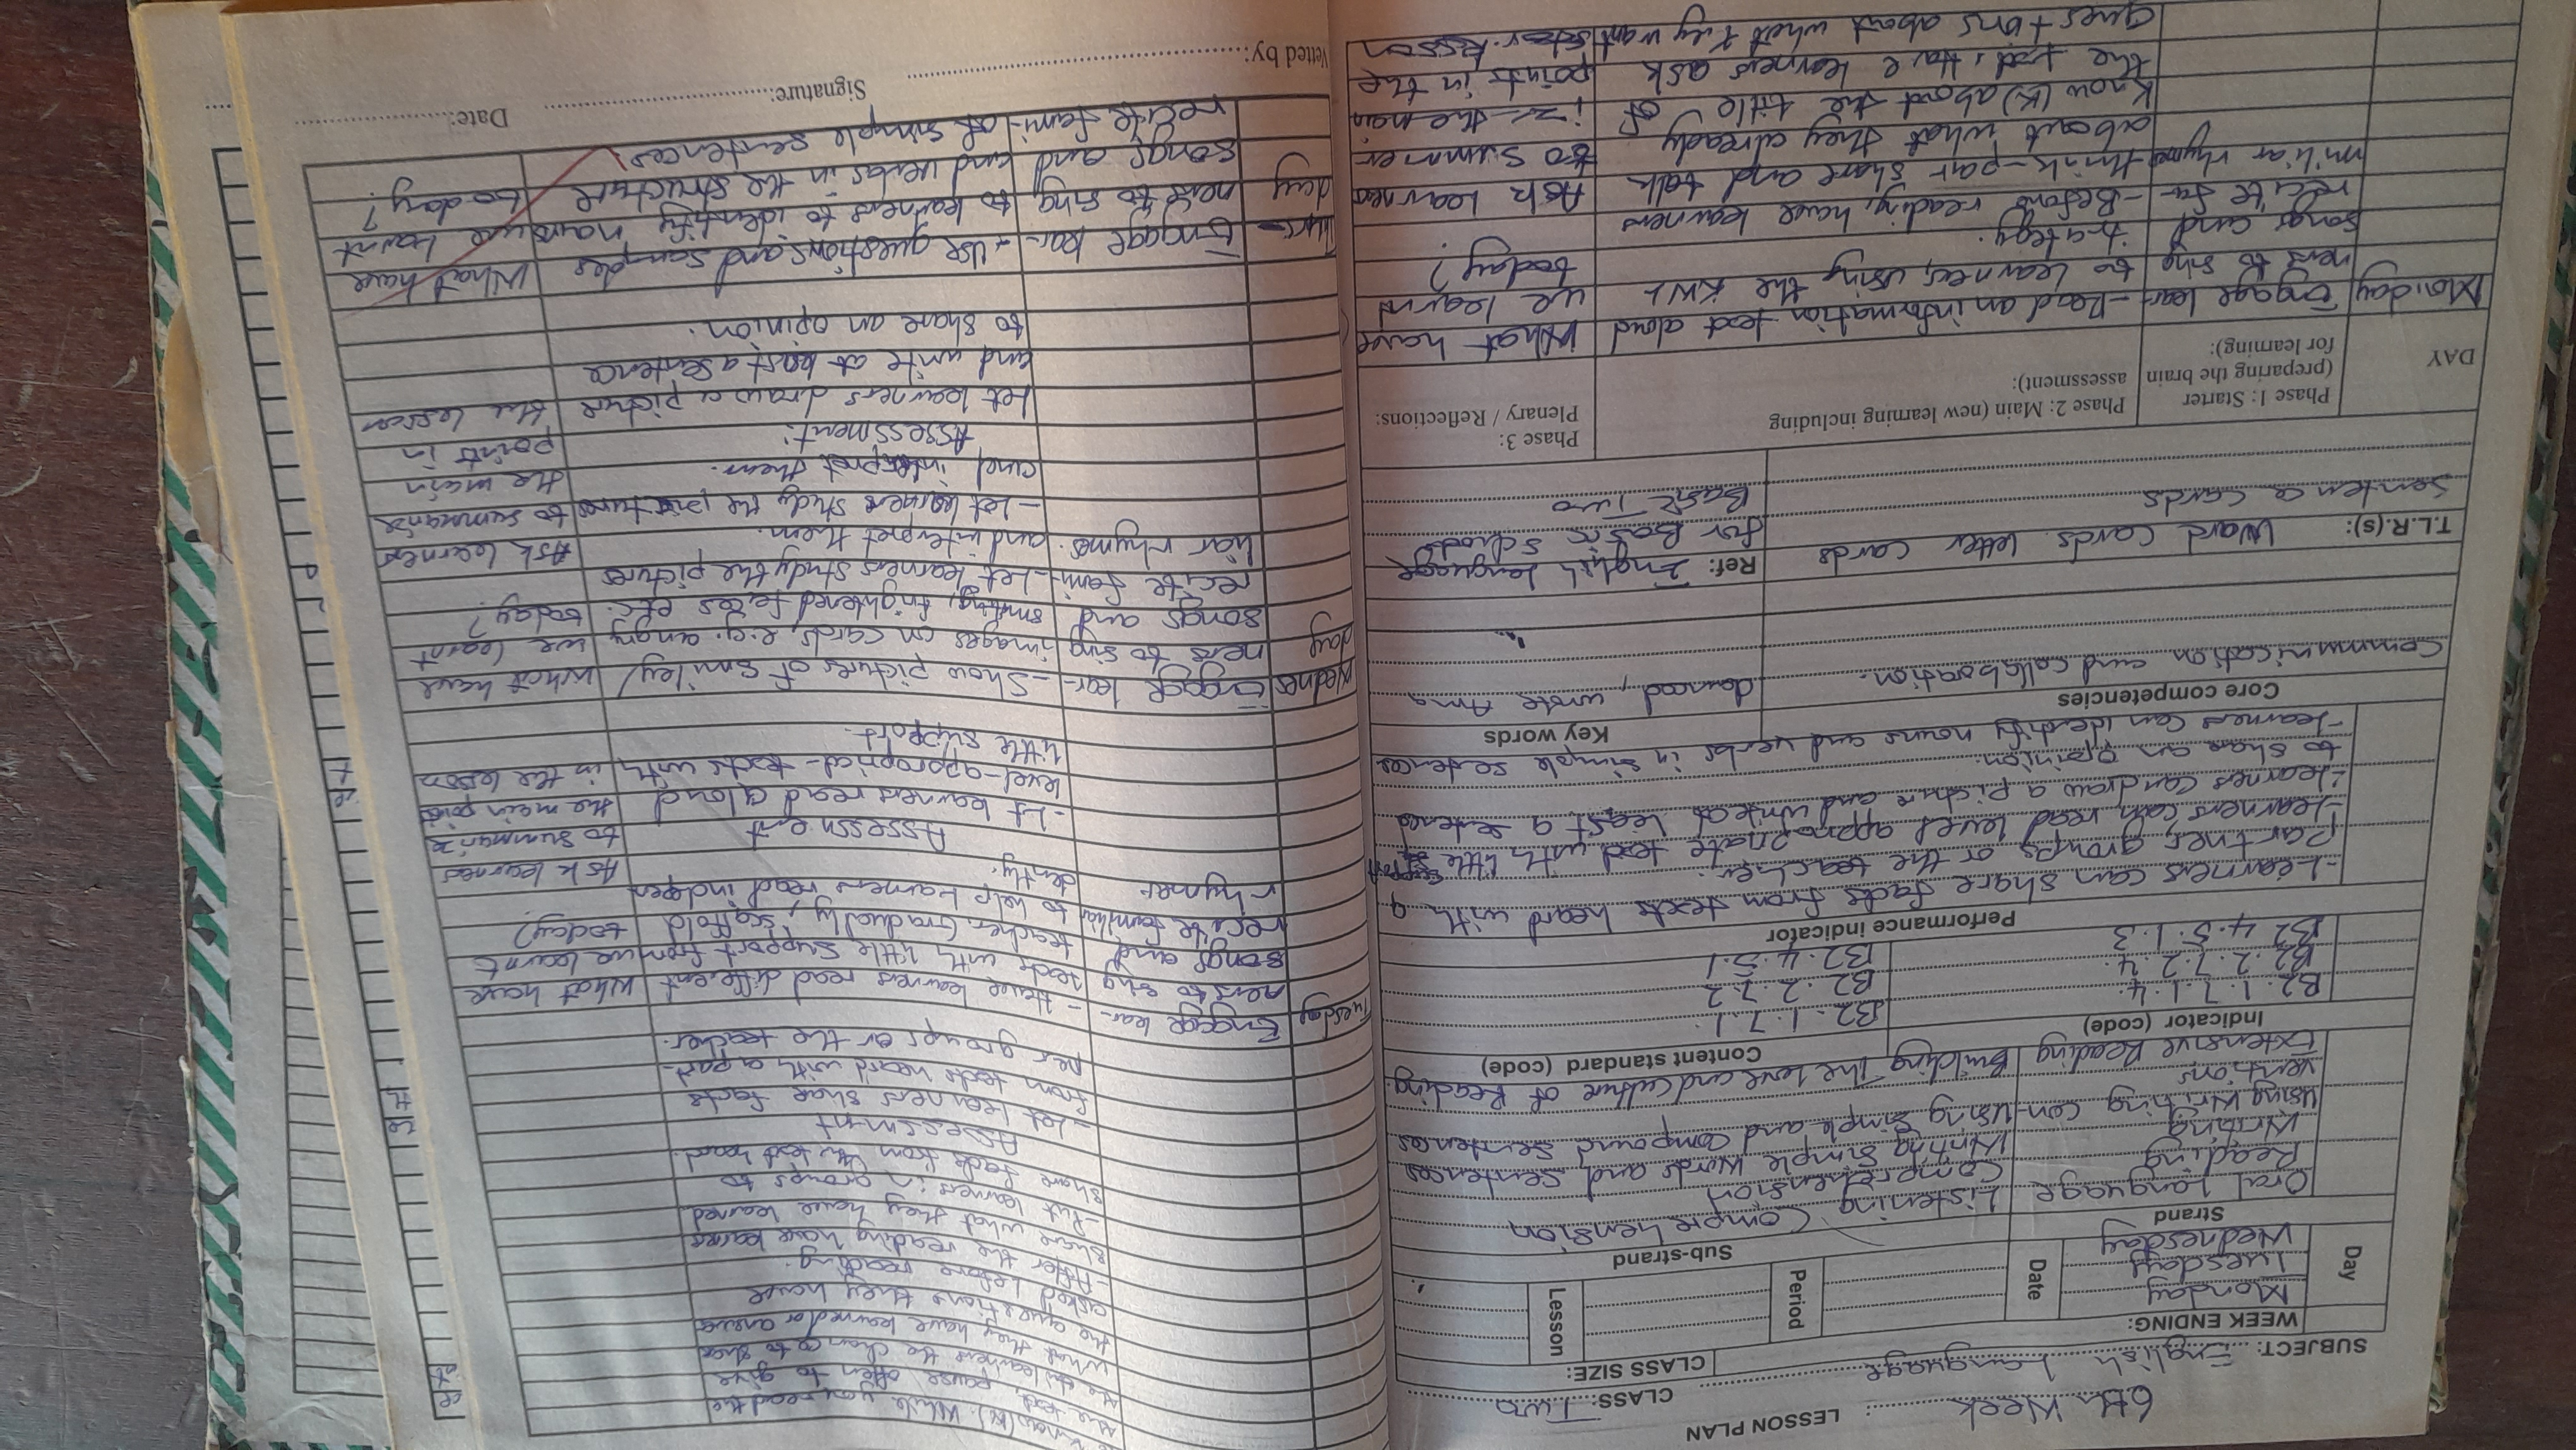 LESSON PLAN
6th Week
CLASS: Two
SUBJECT: English Language
CLASS SIZE:
WEEK ENDING:
Day
Monday
Tuesday
Wednesday
Date
Period
Lesson
Strand
Sub-strand
Oral Language
Reading
Writing
Using Writing Con-
ventions
Extensive Reading
Listening Comprehension
Comprehension
Writing Simple words and sentences
Using Simple and compound sentences
Building The love and culture of Reading.
Indicator (code)
Content standard (code)
B2.1.7.1.4.
B2.2.7.2.4.
B2.4.5.1.3
B2.1.7.1.
B2.2.7.2
B2.4.5.1
Performance indicator
-Learners can share facts from texts heard with a
partner, groups or the teacher.
-learners can read level appropriate text with little support
-learners can draw a picture and write at least a sentence
to share an opinion.
-learners can identify nouns and verbs in simple sentences
Core competencies
Key words
Communication and collaboration.
danced, wrote Ama
T.L.R.(s): Word Cards. letter cards
Sentence cards
Ref: English language
for Basic Schools
Basic Two
DAY
Phase 1: Starter
(preparing the brain
for learning):
Phase 2: Main (new learning including
assessment):
Phase 3:
Plenary / Reflections:
Monday
Engage lear-
ners to sing
songs and
recite fa-
miliar rhymes
-Read an information text aloud
to learners, using the KWL
strategy.
-Before reading, have learners
think-pair share and talk
about what they already
know (K) about the title of
the text. Have learners ask
questions about what they want
What have
we learnt
today?
Ask learners
to summer-
ize the main
points in the
lesson
to know (W). While you read the
the text, pause often to give
the learners the chance to share
what they have learned or answer
the questions they have
asked before reading.
-After the reading have learners
share what they have learned
-Put learners in groups to
share facts from the text heard.
Assessment
-Let learners share facts
from texts heard with a part-
ner groups or the teacher.
Tuesday
Engage lear-
ners to sing
songs and
recite familiar
rhymes
-Have learners read different
texts with little support from
teacher. Gradually, scaffold
to help learners read indepen
dently.
Assessment
-Let learners read aloud
level-appropriat- texts with
little support.
What have
we learnt
today?
Ask learners
to summarize
the main points
in the lesson
Wednes
day
Engage lear-
ners to sing
songs and
recite fami-
liar rhymes.
-Show pictures of smiley/
images on cards, e.g. angry
smiling, frightened faces etc.
-Let learners study the pictures
and interpret them.
-Let learners study the pictures
and interpret them.
Assessment:
Let learners draw a picture
and write at least a sentence
to share an opinion.
What have
we learnt
today?
Ask learners
to summarize
the main
points in
the lesson
Thurs-
day
Engage lear-
ners to sing
songs and
recite fami-
-Use questions and samples
to learners to identify nouns
and verbs in the structure
of simple sentences.
What have
we learnt
today?
Vetted by:
Signature:
Date: